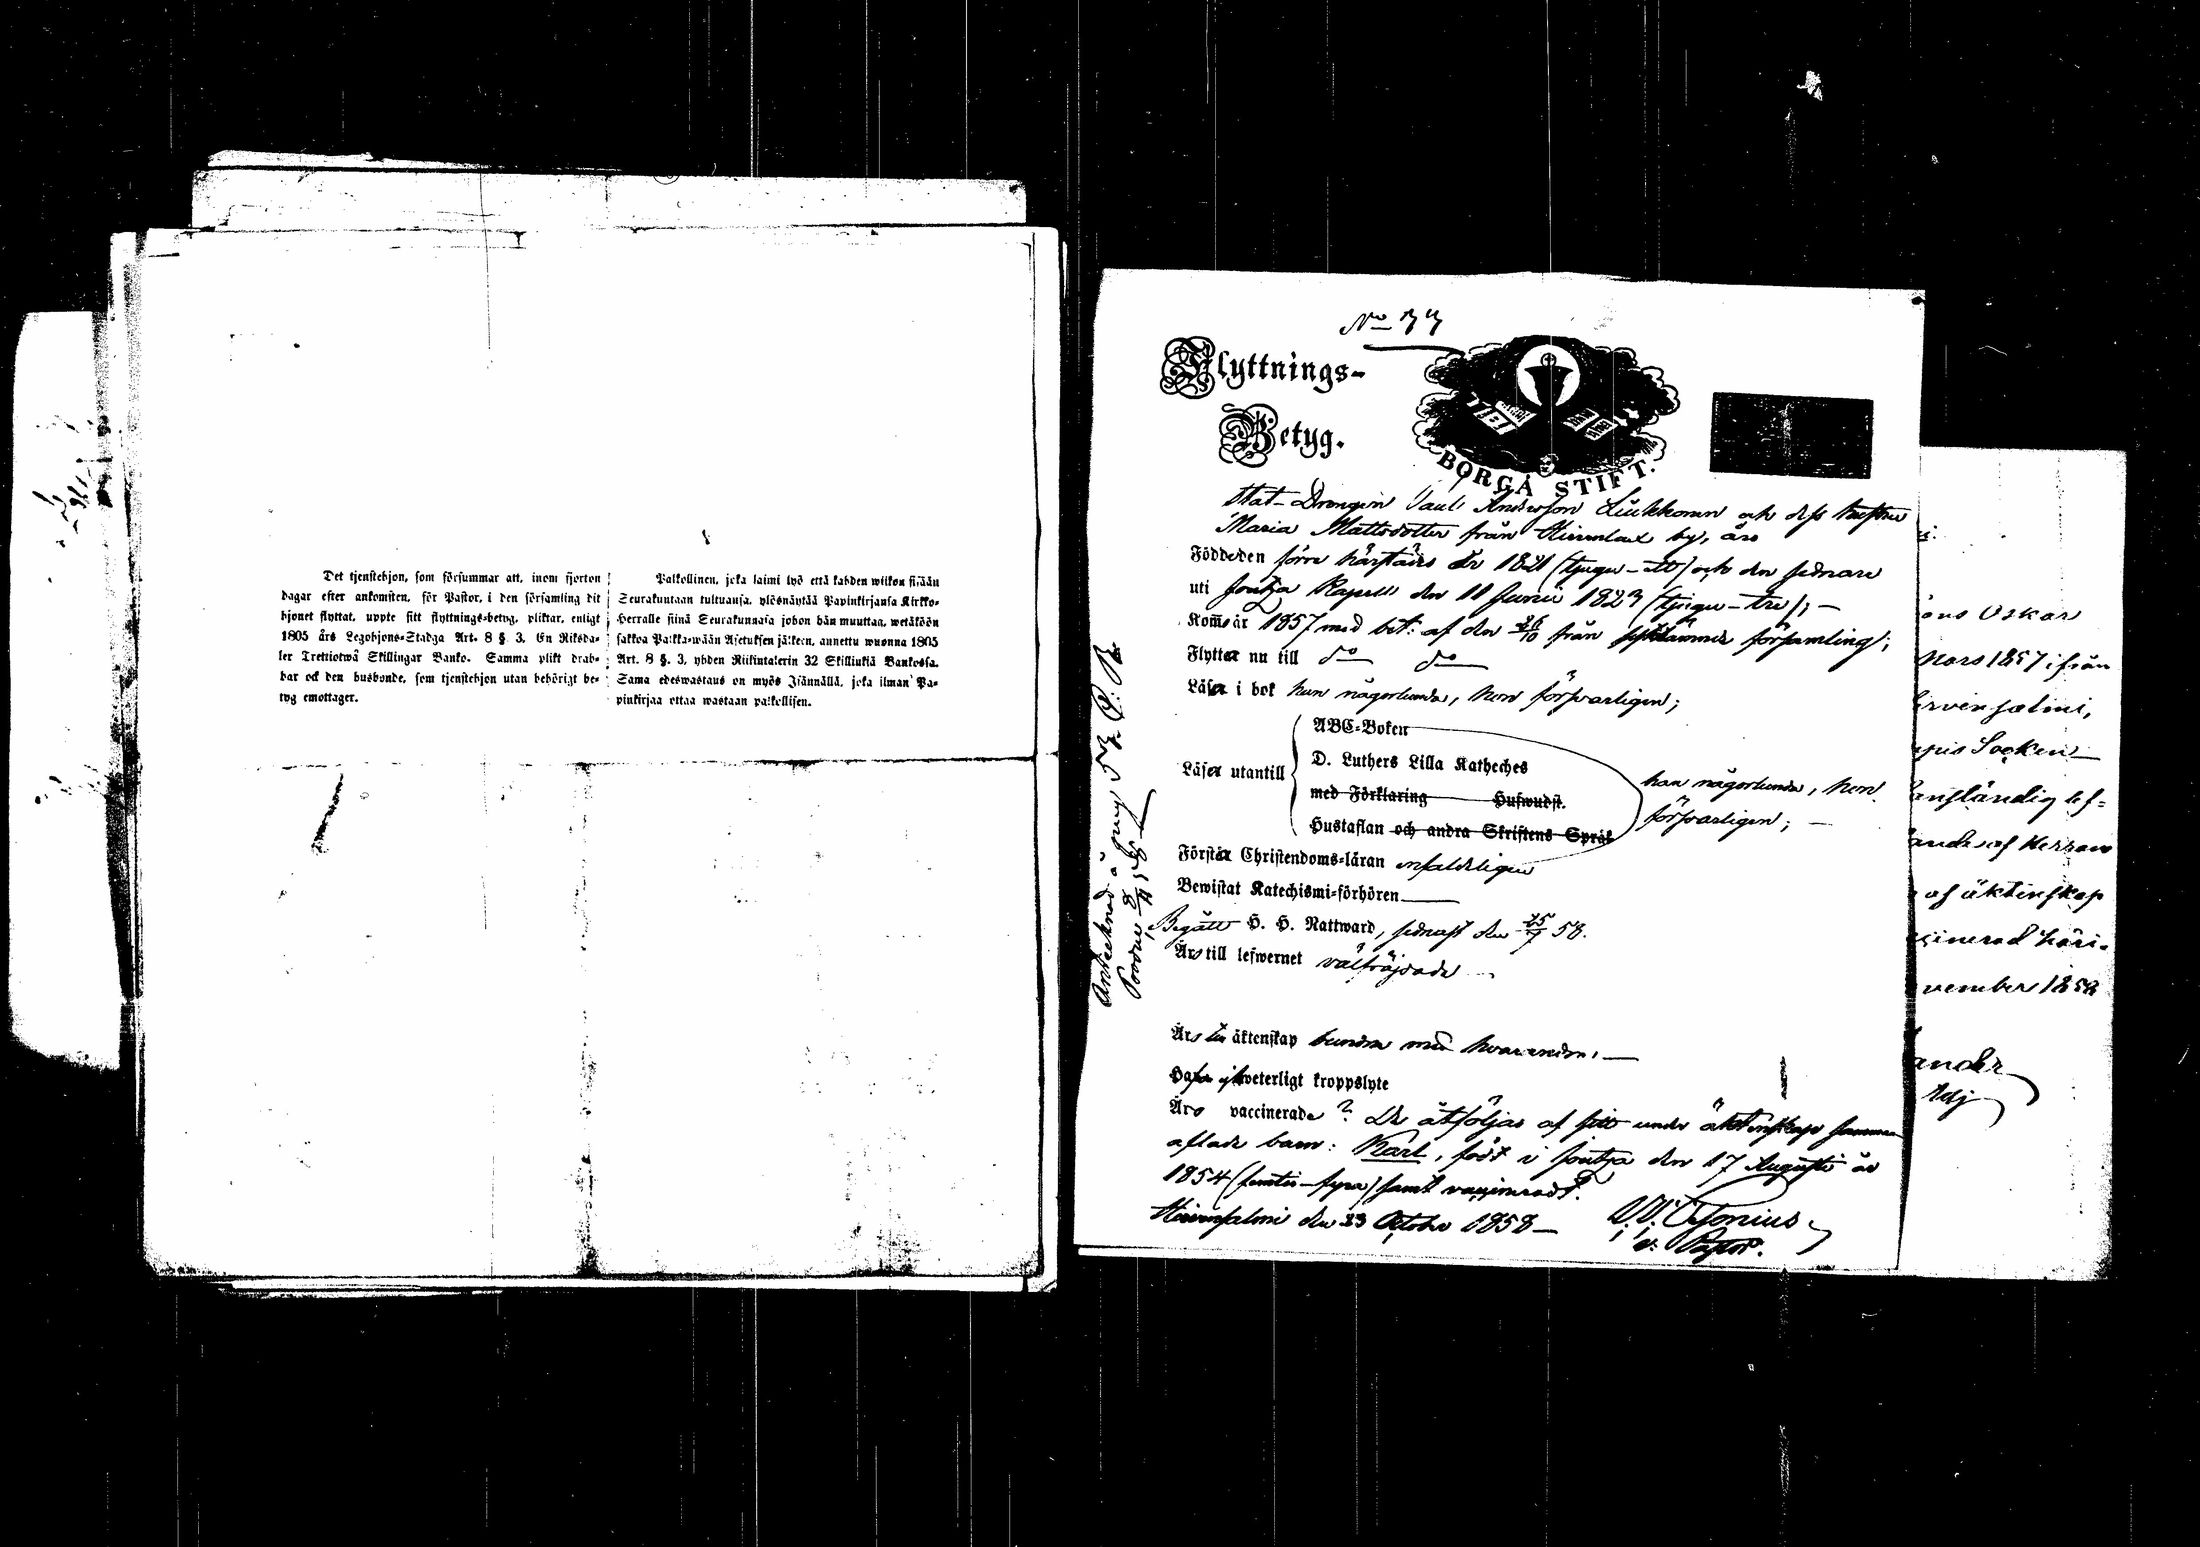 Det tjenstehjon, som försummar att, inom fjorton
dagar efter ankomsten, för Pastor, i den församling dit
hjonet flyttat, uppte sitt flyttnings-betyg, pliktar, enligt
1805 års Legohjons-Stadga Art. 8 §. 3. En Riksda-
ler Trettiotwå Skillingar Banko. Samma plikt drab-
bar ock den husbonde, som tjenstehjon utan behörigt be-
tyg emottager.
Palkollinen, joka laimi lyö että kahden wiikon sisään
Seurakuntaan tultuansa, ylösnäytää Papinkirjansa Kirkko-
Herralle siinä Seurakunnasa johon hän muuttaa, wetäköön
sakkoa Palkka-wään Asetuksen jälkeen, annettu wuonna 1805
Art. 8 §. 3, yhden Riikintalerin 32 Skillinkiä Bankossa.
Sama edeswastaus on myös Isännällä, joka ilman Pa-
pinkirjaa ottaa wastaan palkollisen.
No 77
Flyttnings-
Betyg.
BORGÅ STIFT.
Stat-Drengen Paul Andersson Liukkonen och dess hustru
Maria Mattsdotter från Hirvenlax by, äro
Födde den förre härstädes år 1821 (tjugu-ett) och den sednare
uti Joutsa Kapell den 11 Junii 1823 (tjugu-tre);—
Komo år 1857 med bet: af den 26/10 från församling;
Flytta nu till do do
Läsa i bok han någorlunda, hon försvarligen;
ABC-Boken
D. Luthers Lilla Katheches
Läsa utantill
med Förklaring Hufwudst.
han någorlunda, hon
Hustaflan och andra Skriftens Språk
försvarligen; —
Förstå Christendoms-läran enfaldeligen
Bewistat Katechismi-förhören
Begått H. H. Nattward, sednast den 25/7 58.
Äro till lefwernet välfräjdade
Äro till äktenskap bundne med hvarandra.—
Hafva ej veterligt kroppslyte
Äro vaccinerade? De åtföljas af sitt under äktenskap samman
aflade barn: Karl, född i Joutsa den 17 Augusti år
1854 (femtio-fyra) samt vaccinerad.
Hirvensalmi den 23 Octobr 1858—
v: Pastor.
Antecknad å
ons Oskar
Mars 1857 ifrån
Hirvensalmi,
Socken—
anständig lef-
ande af Herrans
af äktenskap
cinerad häri-
vember 1858
ander
Adj